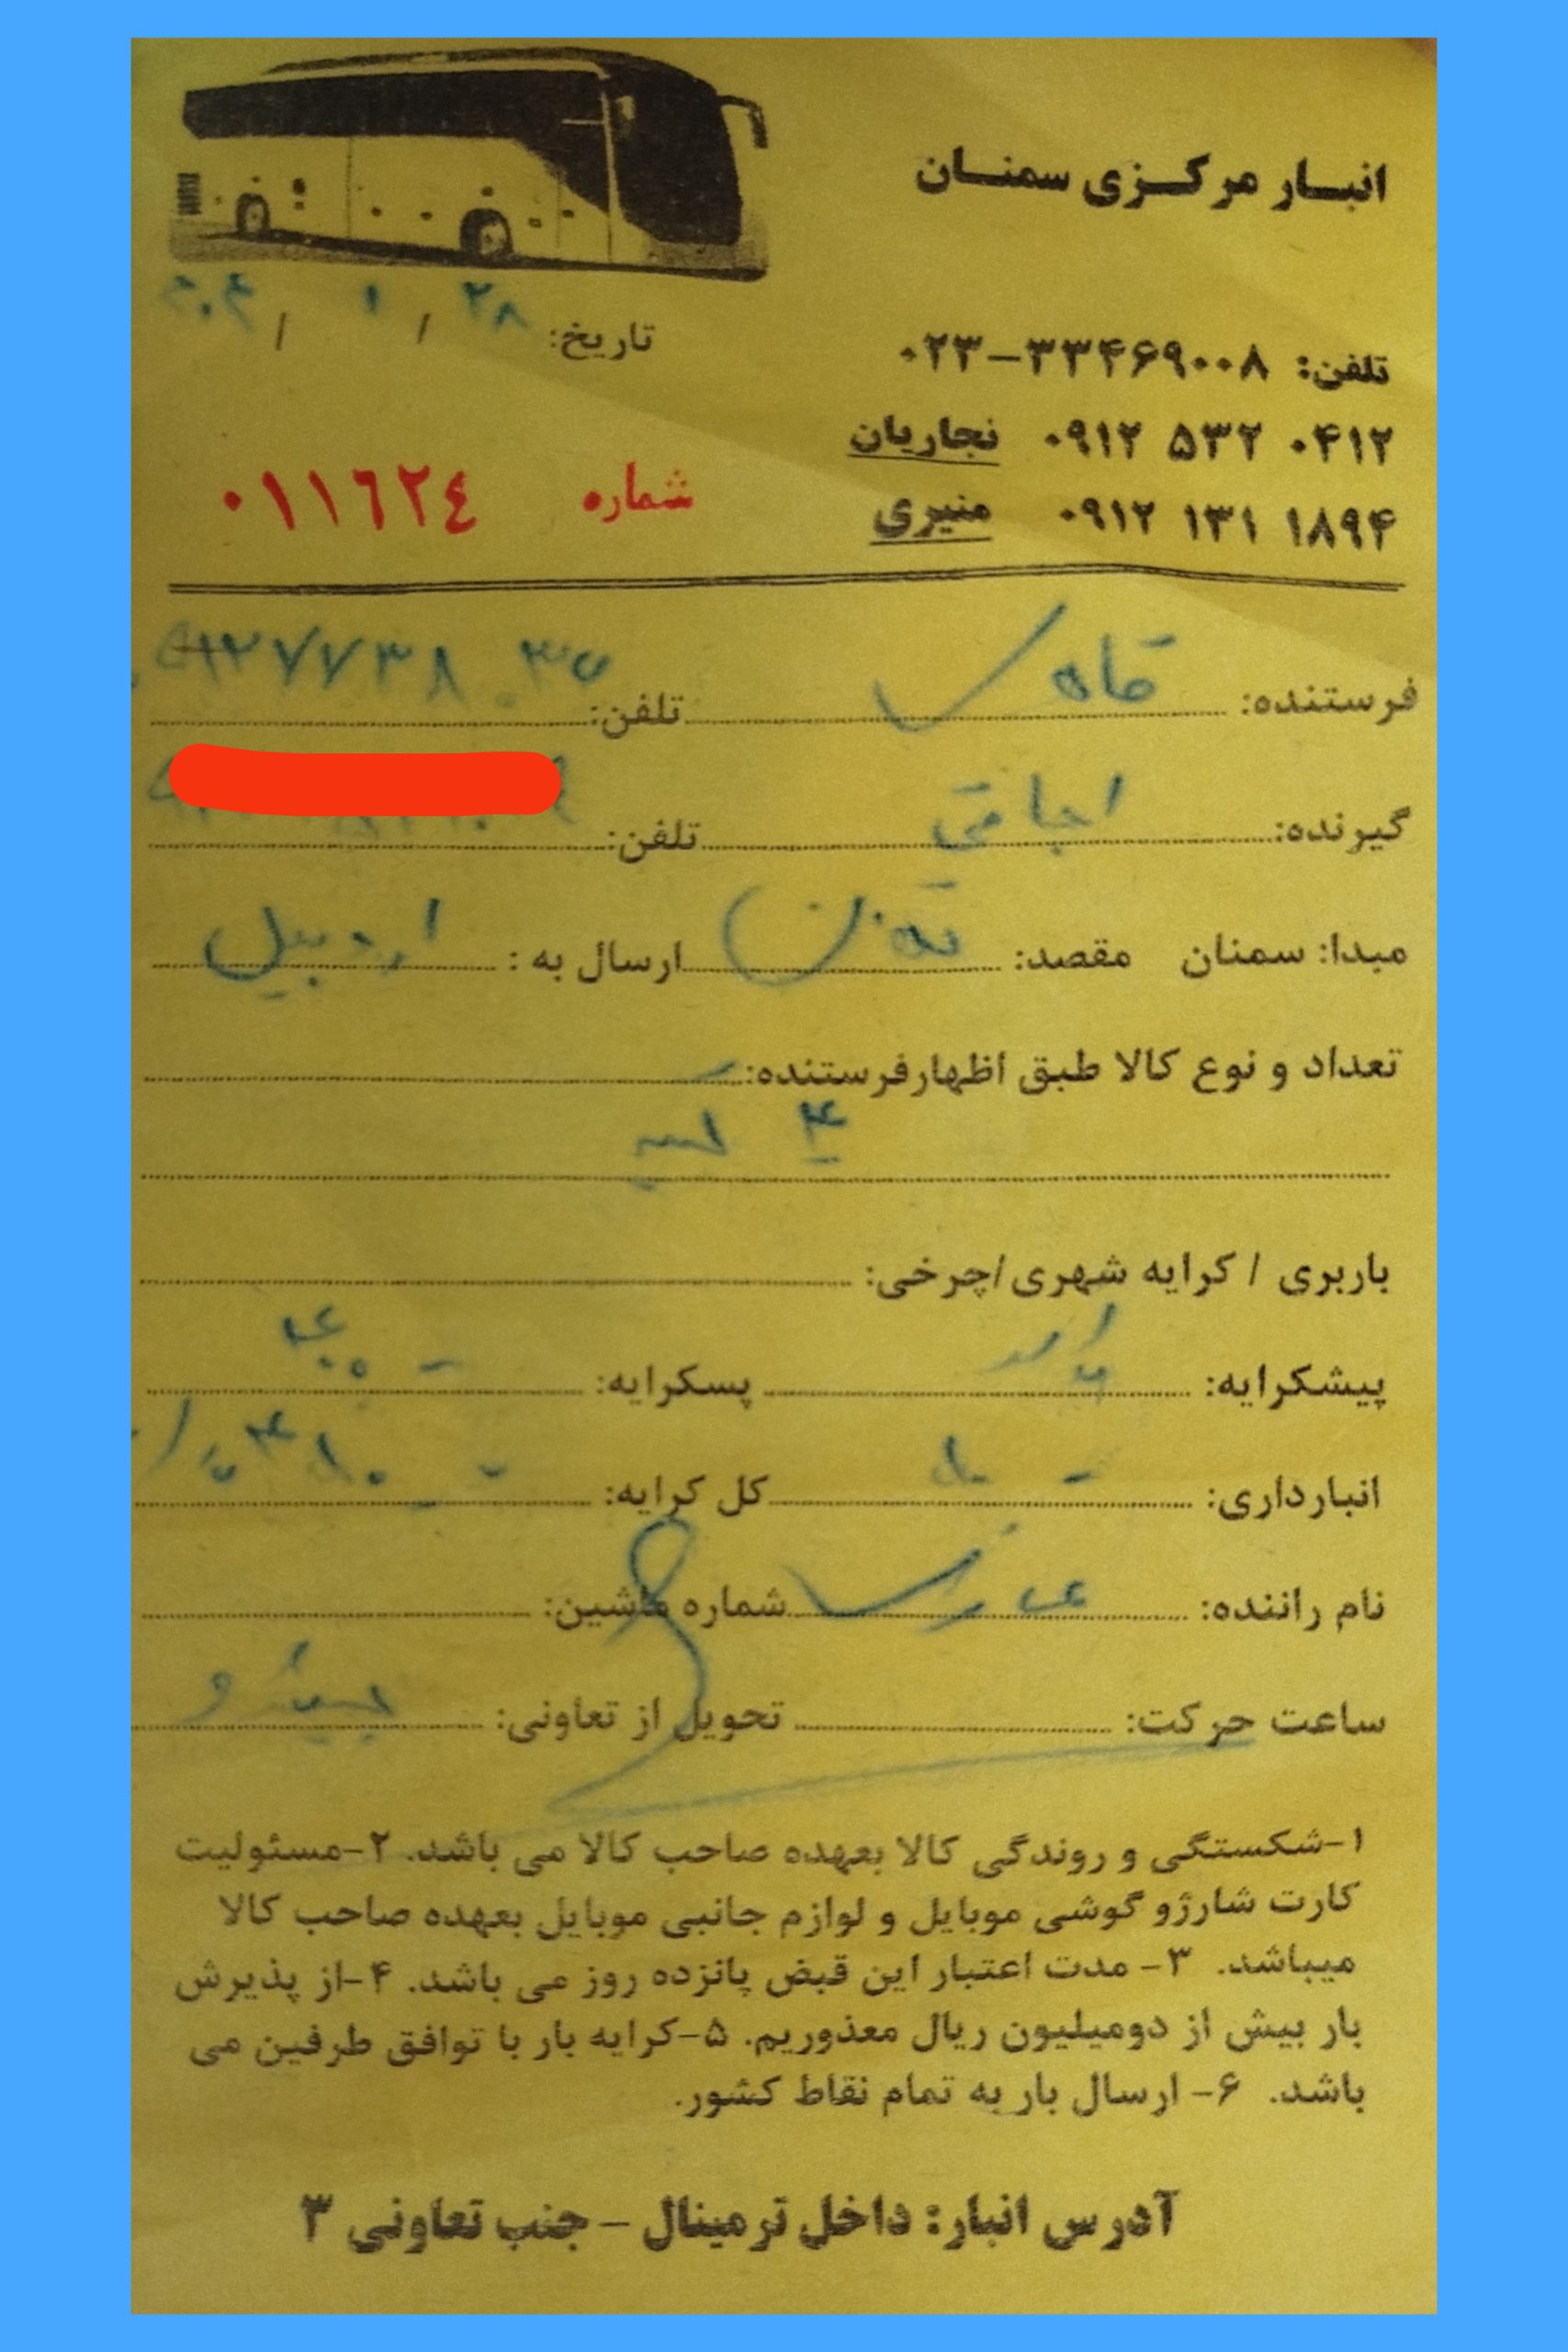 انبار مرکزی سمنان
تاریخ: ۲۸ / ۱ /
تلفن: ۰۲۳-۳۳۴۶۹۰۰۸
۰۹۱۲ ۵۳۲ ۰۴۱۲ نجاریان
شماره ٠١١٦٢٤
۰۹۱۲ ۱۳۱ ۱۸۹۴ منیری
فرستنده: تلفن:
گیرنده: تلفن:
مبدا: سمنان مقصد: تهران ارسال به: اردبیل
تعداد و نوع کالا طبق اظهارفرستنده:
۴
باربری / کرایه شهری/چرخی:
پیشکرایه: پسکرایه:
انبارداری: کل کرایه:
نام راننده: شماره ماشین:
ساعت حرکت: تحویل از تعاونی: پیشرو
۱-شکستگی و روندگی کالا بعهده صاحب کالا می باشد. ۲-مسئولیت
کارت شارژو گوشی موبایل و لوازم جانبی موبایل بعهده صاحب کالا
میباشد. ۳- مدت اعتبار این قبض پانزده روز می باشد. ۴-از پذیرش
بار بیش از دومیلیون ریال معذوریم. ۵-کرایه بار با توافق طرفین می
باشد. ۶- ارسال بار به تمام نقاط کشور.
آدرس انبار: داخل ترمینال - جنب تعاونی ۳